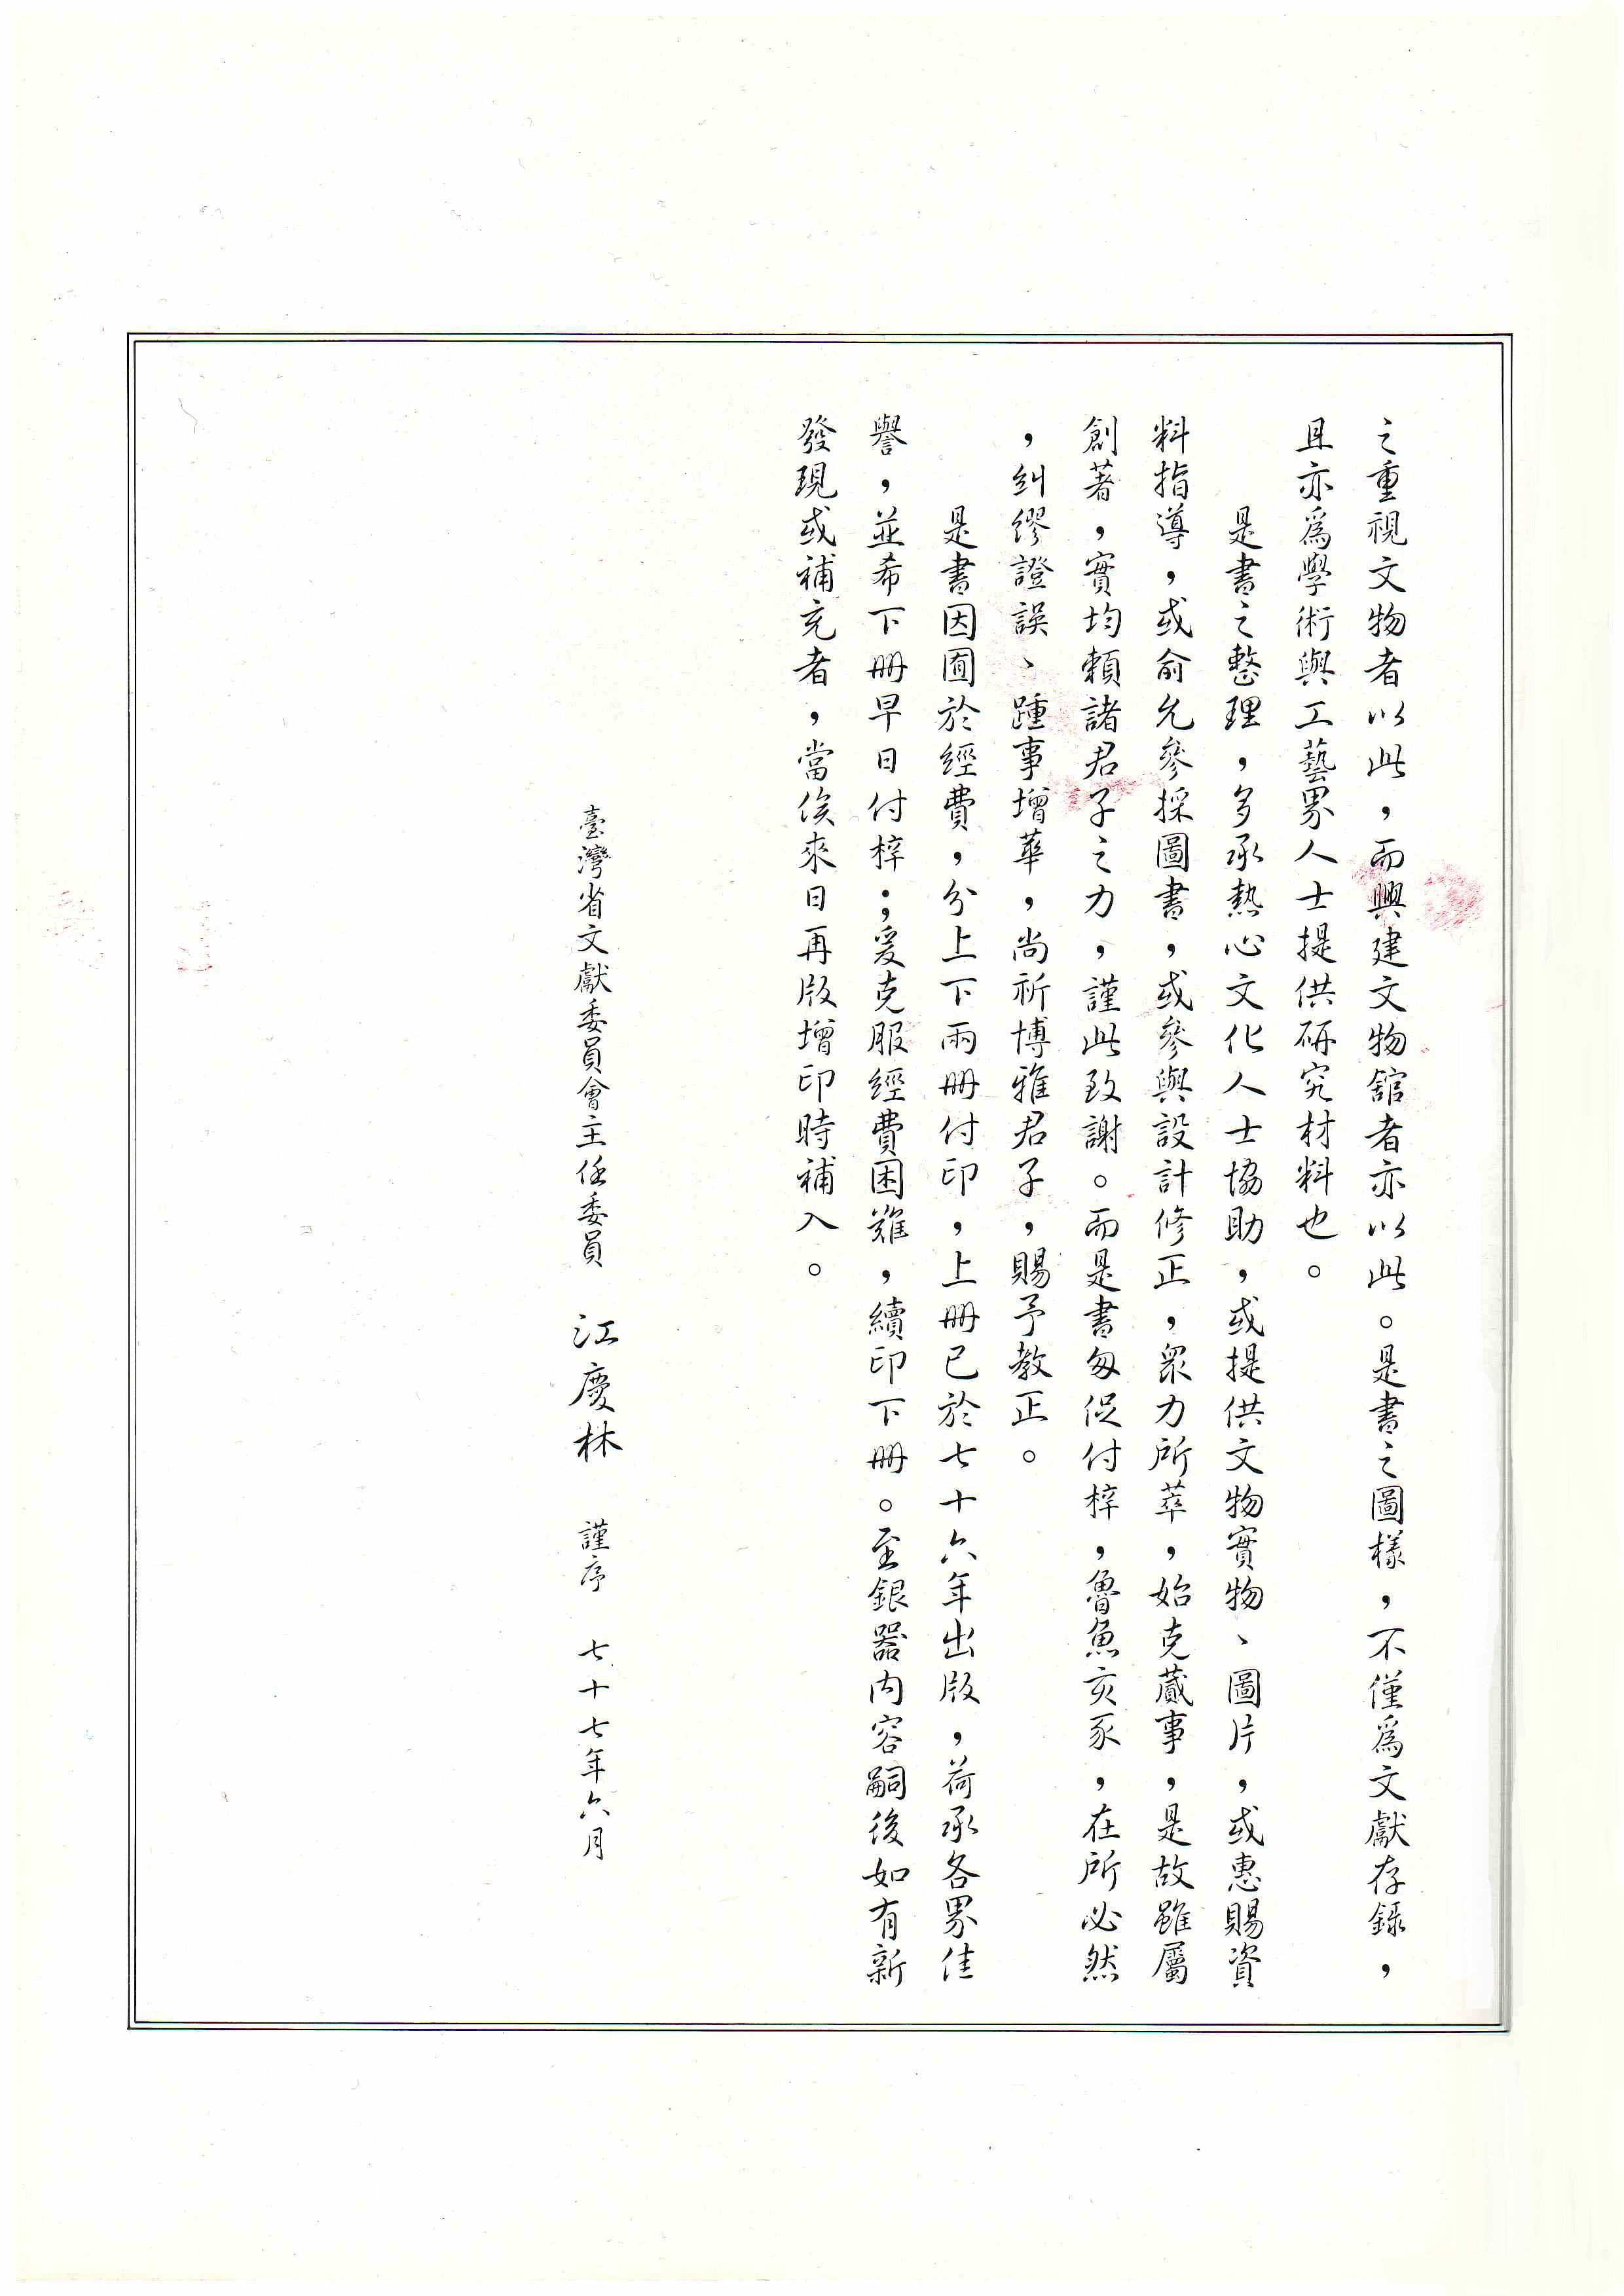 之重視文物者以此，而興建文物舘者亦以此。是書之圖樣，不僅爲文獻存錄，
且亦爲學術與工藝界人士提供研究材料也。
是書之整理，多承熱心文化人士協助，或提供文物實物、圖片，或惠賜資
料指導，或俞允參採圖書，或參與設計修正，衆力所萃，始克蕆事，是故雖屬
創著，實均賴諸君子之力，謹此致謝。而是書匆促付梓，魯魚亥豕，在所必然
，糾繆證誤、踵事增華，尚祈博雅君子，賜予教正。
是書因囿於經費，分上下兩冊付印，上冊已於七十六年出版，荷承各界佳
譽，並希下冊早日付梓；爰克服經費困難，續印下冊。至銀器內容嗣後如有新
發現或補充者，當俟來日再版增印時補入。
臺灣省文獻委員會主任委員　江慶林　謹序　七十七年六月